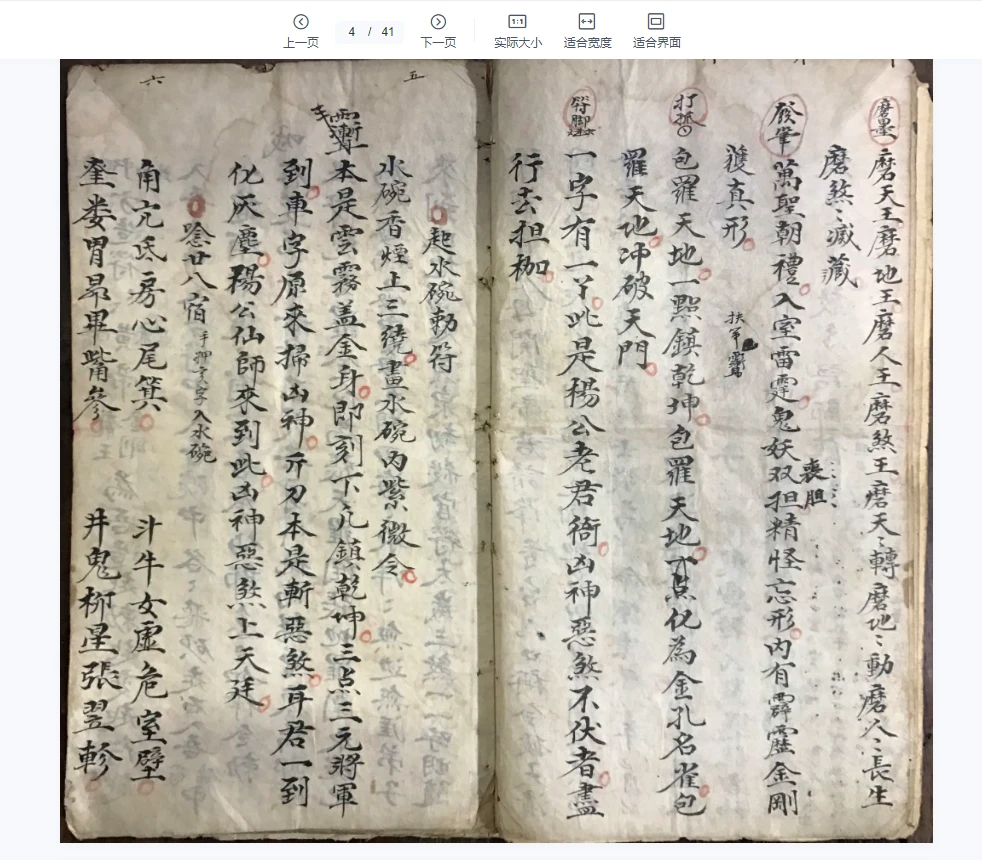 上一页
4 / 41
下一页
1:1
实际大小
适合宽度
适合界面
磨墨
磨天王磨地王磨人王磨煞王磨天〻轉磨地〻動磨人〻長生
磨煞〻滅藏
發筆
萬聖朝禮入室雷霆鬼妖双担精怪忘形内有霹靂金剛
喪胆
護真形
扶筆
打
包羅天地一點鎮乾坤包羅天地下点化為金孔名雀包
羅天地冲破天門
符脚
一字有一丫此是楊公老君衙凶神惡煞不伏者盡
行去担枷
五
起水碗勅符
水碗香煙上三繞畫水碗内紫微令
本是雲霧盖金身即刻下凡鎮乾坤三点三元將軍
到車字原來掃凶神斤刀本是斬惡煞耳君一到
化灰塵楊公仙師來到此凶神惡煞上天廷
唸廿八宿
入水碗
角亢氐房心尾箕 斗牛女虛危室壁
奎娄胃昴畢觜參 井鬼柳星張翌軫
六